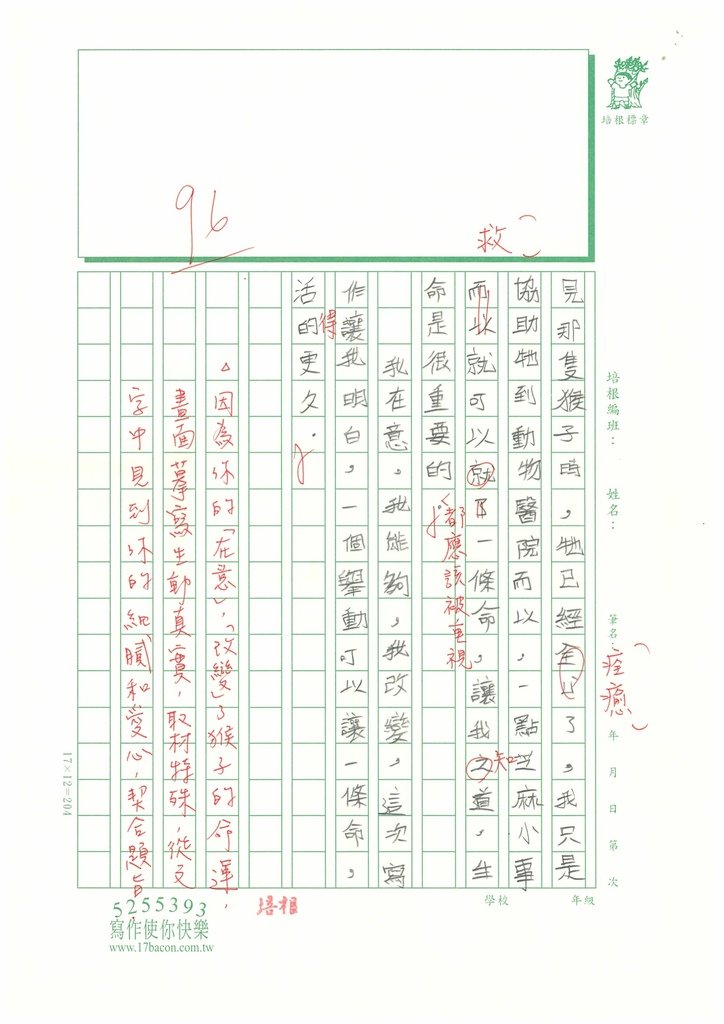 見那隻猴子時，牠已經全ㄩˋ了，我只是
協助牠到動物醫院而以，一點芝麻小事
而以就可以就了一條命，讓我之道，生
命是很重要的。
我在意，我能夠，我改變，這次寫
作讓我明白，一個舉動可以讓一條命，
活的更久。
救
痊癒
知
都應該被重視
得
96
△因為你的「在意」，「改變」了猴子的命運，
畫面摹寫生動真實，取材特殊，從文
字中見到你的細膩和愛心，契合題旨。
培根標章
培根編班：
姓名：
筆名：
年 月 日 第 次
學校 年級
17×12=204
培根
5255393
寫作使你快樂
www.17bacon.com.tw